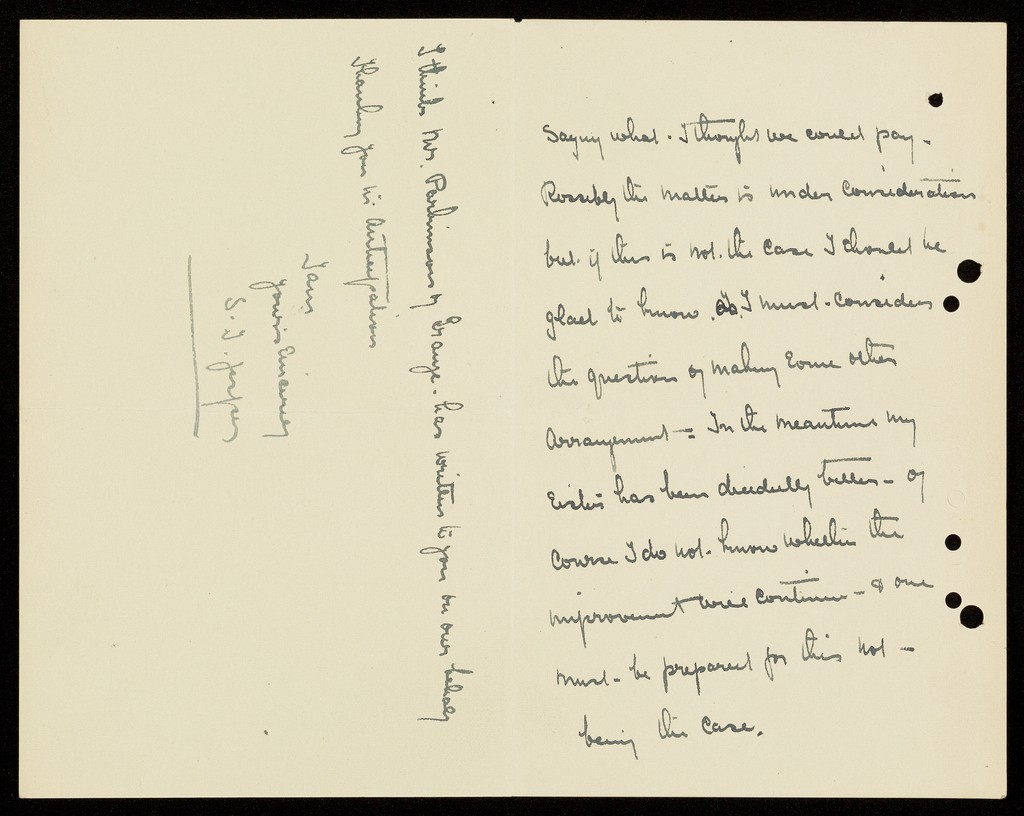 Saying what I thought we could pay.
Possibly the matter is under Consideration
but if this is not the case I should be
glad to know, as I must Consider
the question of making Some other
Arrangement - In the meantime my
Sister has been decidedly better - of
Course I do not know whether the
improvement will Continue - & one
must be prepared for this not -
being the Case.
I think Mr. Parkinson of Grange - has written to you on our behalf
Thanking you in Anticipation
I am
Yours Sincerely
S. J.